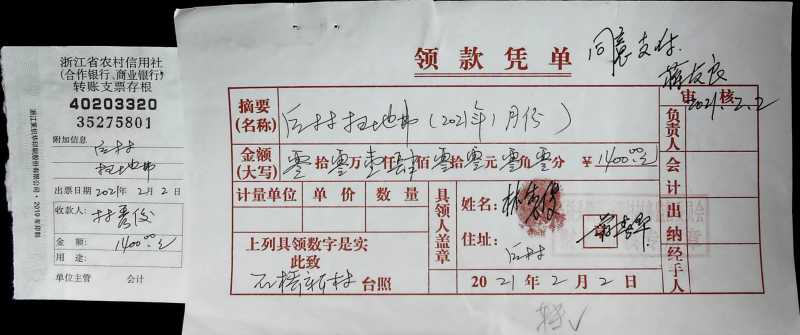 浙江省农村信用社
(合作银行、商业银行)
转账支票存根
40203320
35275801
附加信息
后村
扫地费
出票日期 2021年 2月 2日
收款人:
林秀俊
金 额: 1400.00元
用 途:
单位主管 会计
领款凭单
同意支付.
2021.2.2
摘要
(名称) 后村扫地费(2021年1月份)
金额
(大写) 零拾零万壹仟肆佰零拾零元零角零分 ¥ 1400.00元
计量单位 单 价 数 量
上列具领数字是实
此致
石桥新村 台照
具领人盖章
姓名: 林秀俊
住址: 后村
2021年 2月 2日
审 核
负责人
会计
出纳
经手人